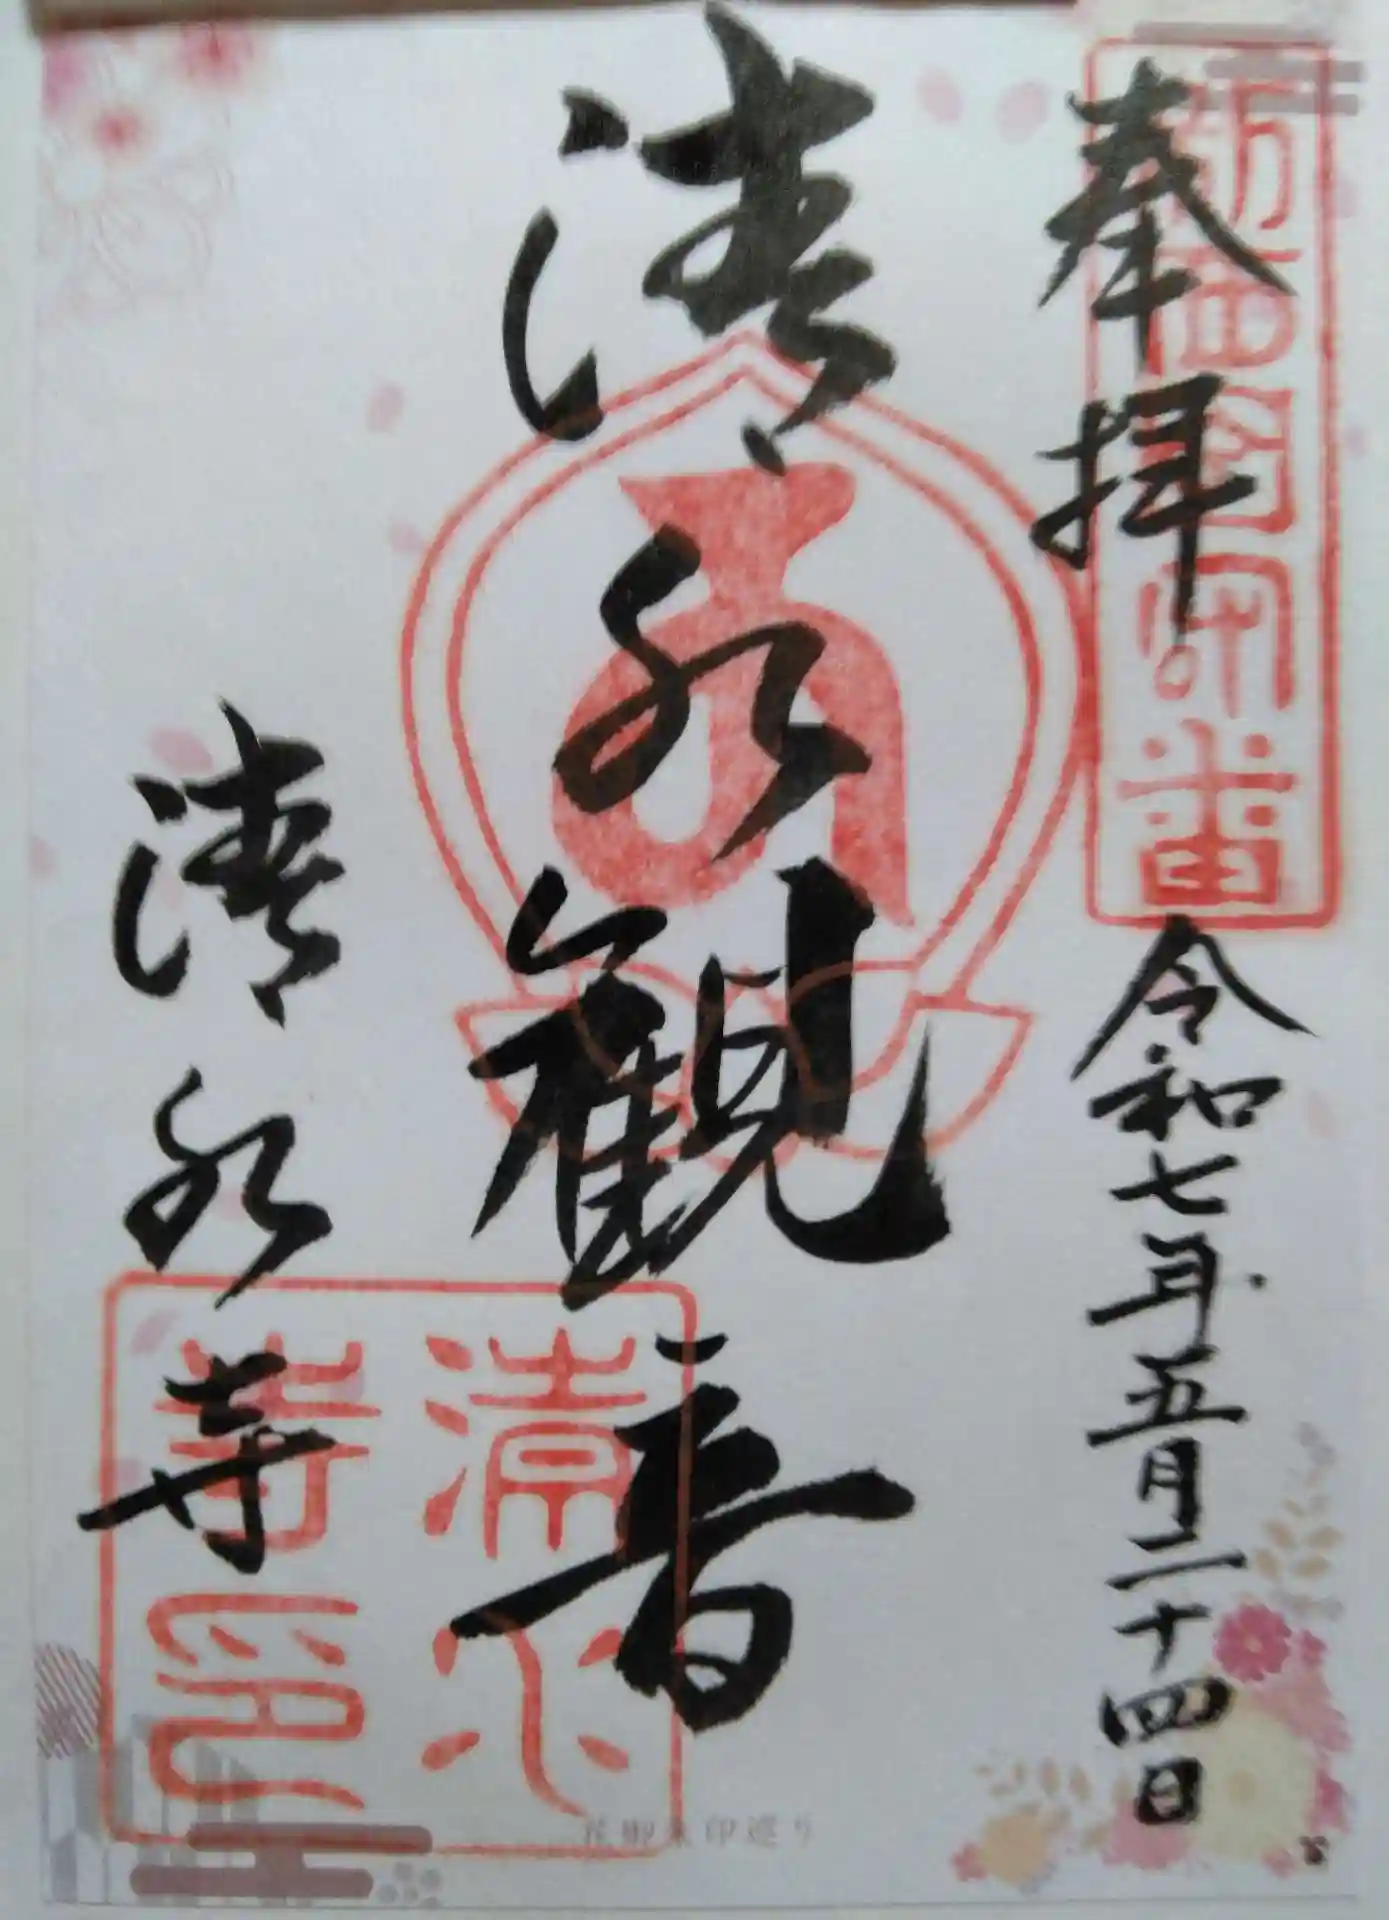 奉拝
令和七年五月二十四日
清水観音
清水寺
清水寺印
花御朱印巡り